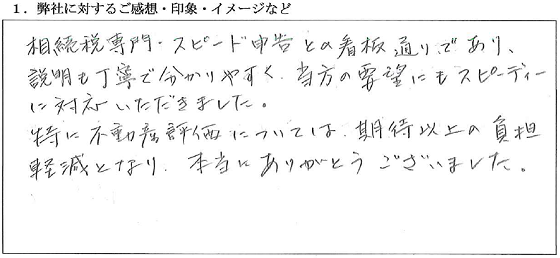 1．弊社に対するご感想・印象・イメージなど
相続税専門・スピード申告との看板通りであり、
説明も丁寧で分かりやすく、当方の要望にもスピーディー
に対応いただきました。
特に不動産評価については、期待以上の負担
軽減となり、本当にありがとうございました。